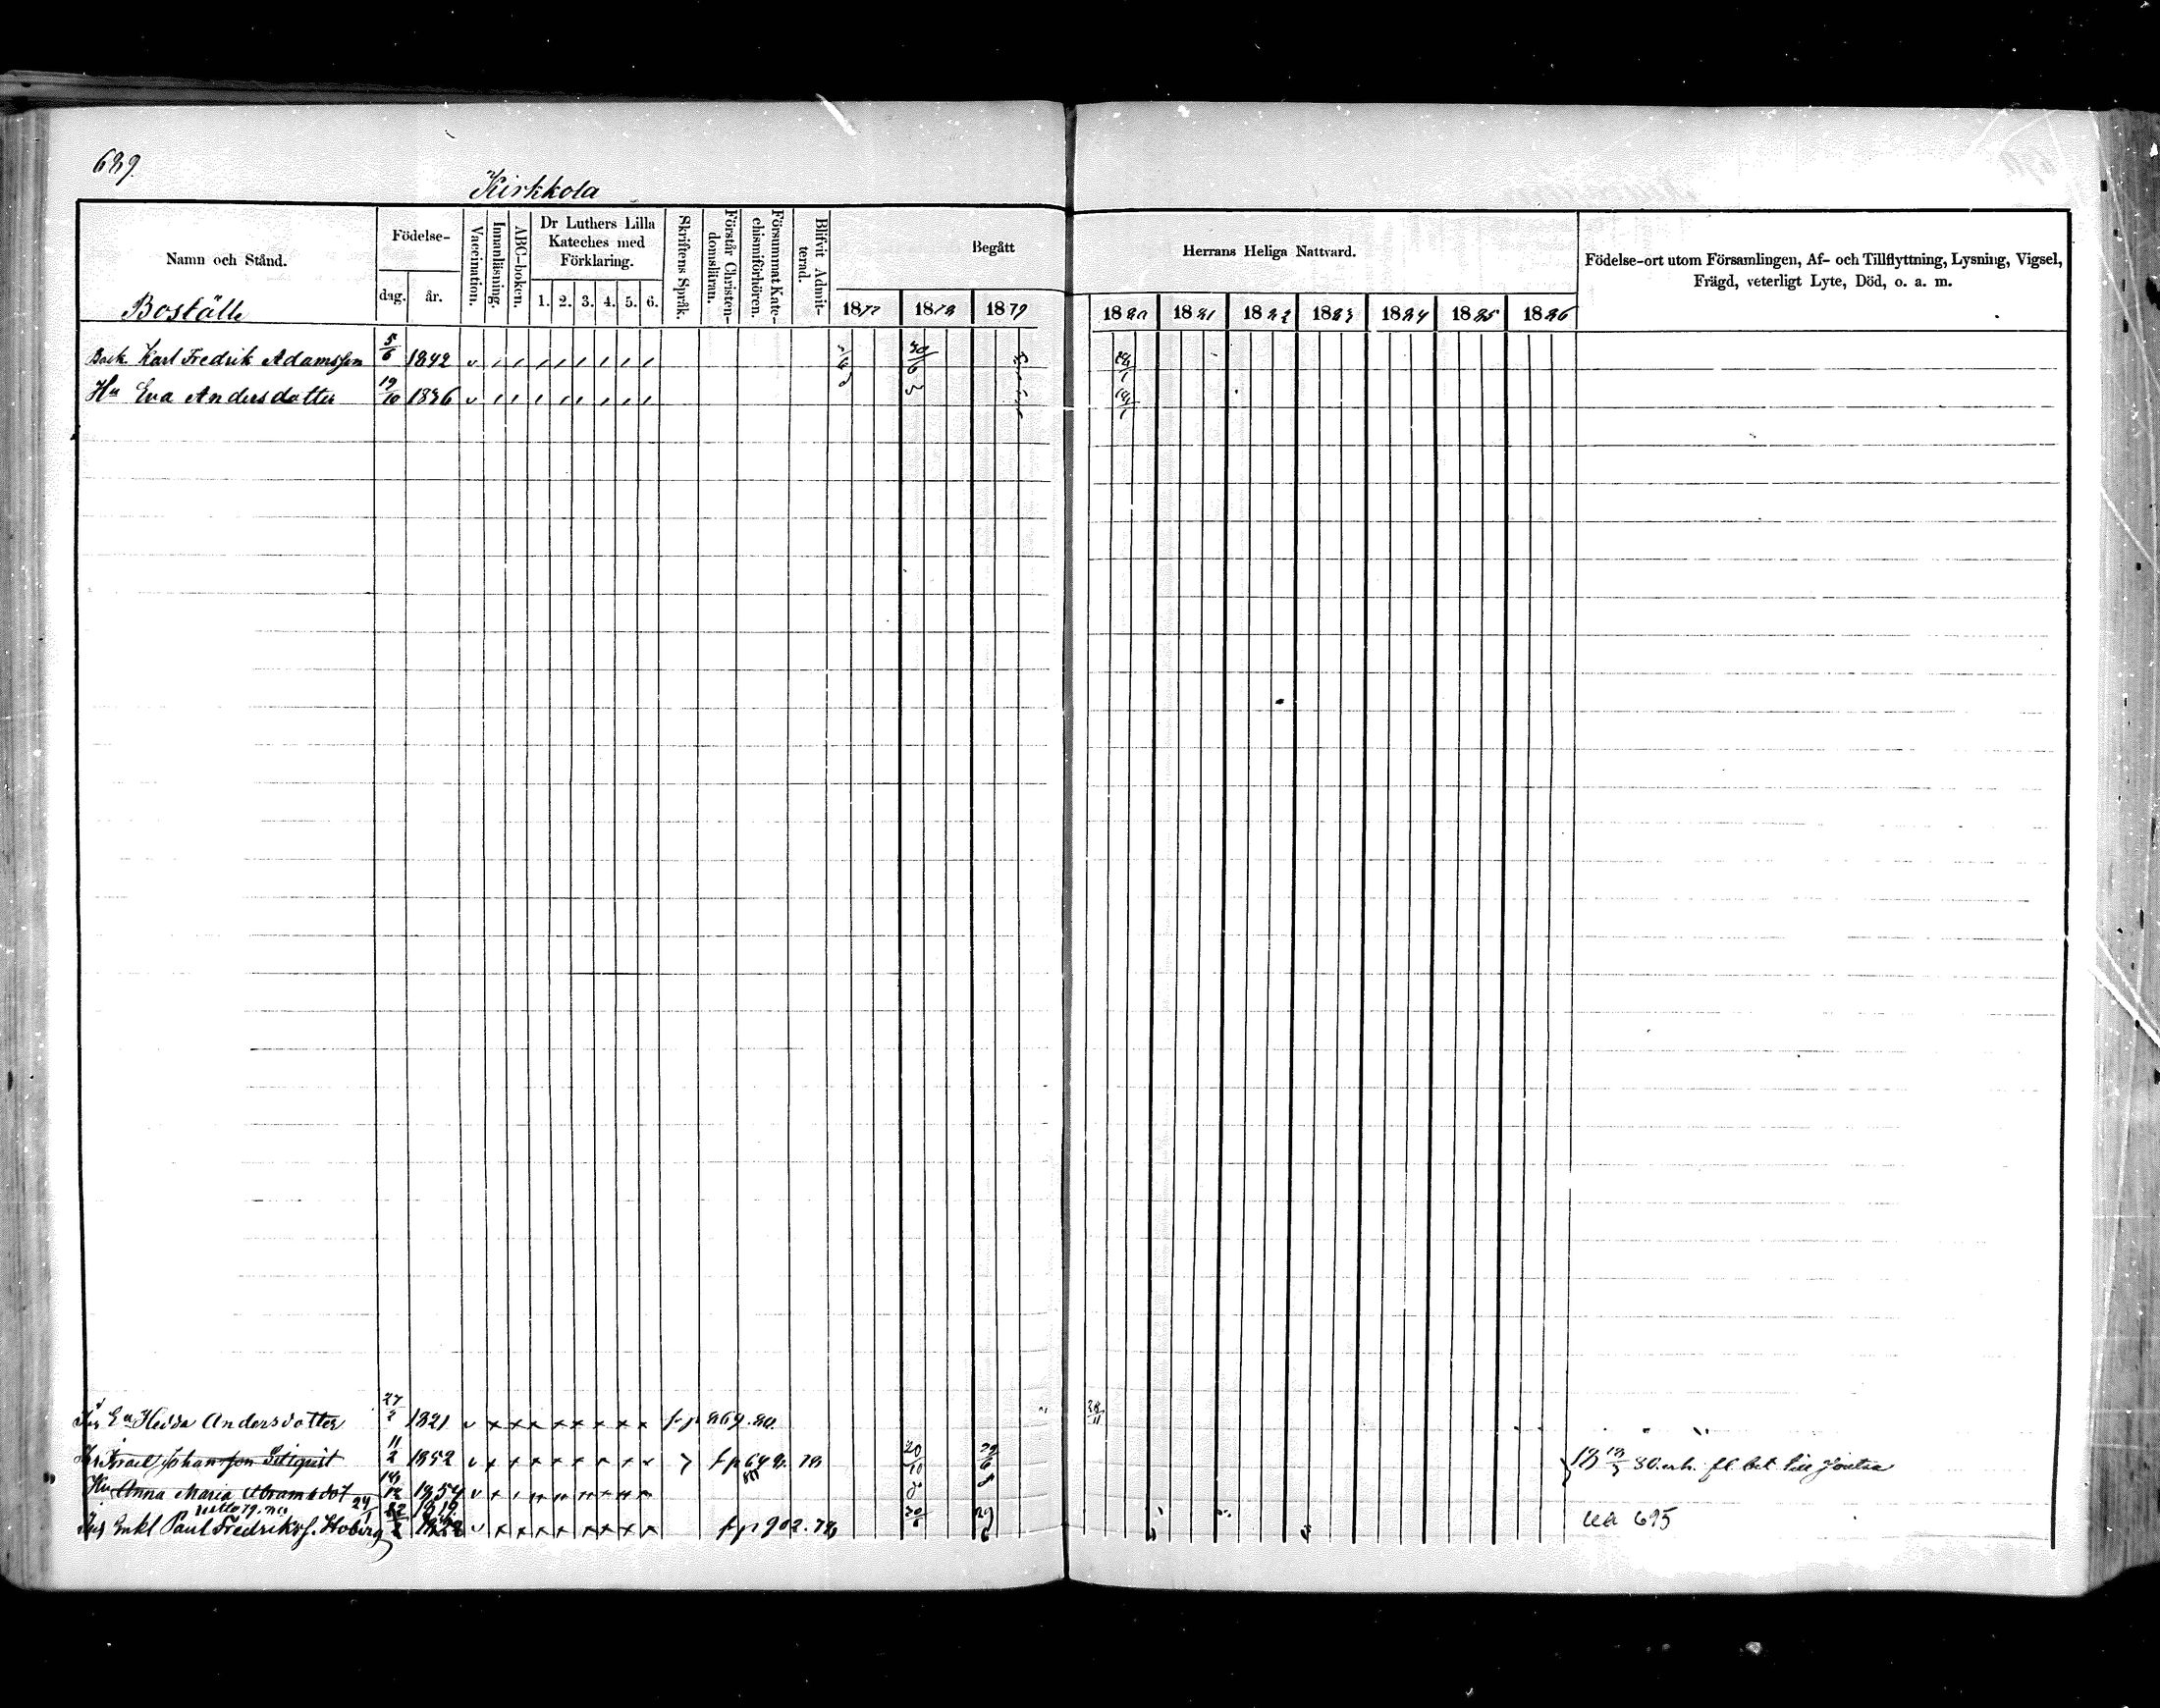 689.
Kirkkola
Namn och Stånd.
Födelse-
dag. år.
Vaccination.
Innanläsning.
ABC-boken.
Dr Luthers Lilla
Kateches med
Förklaring.
1. 2. 3. 4. 5. 6.
Skriftens Språk.
Förstår Christen-
domsläran.
Försummat Kate-
chismiförhören.
Blifvit Admit-
terad.
Begått
1877 1878 1879
Herrans Heliga Nattvard.
1880 1881 1882 1883 1884 1885 1886
Födelse-ort utom Församlingen, Af- och Tillflyttning, Lysning, Vigsel,
Frägd, veterligt Lyte, Död, o. a. m.
Boställe
Back. Karl Fredrik Adamsson 5/6 1842 30/6
Hu Eva Andersdotter 19/10 1836
Hedda Andersdotter 27/2 1821 fp 869. 80. 28/11
Israel Johansson 11/2 1852 7 fp 649. 78 20/10 80. enh. fl. bet. till Joutsa
Hu Anna Maria Abramsdot 12 1854
Enkl Paul Fredrikss. Hoberg fp 902. 78 29 ua 695